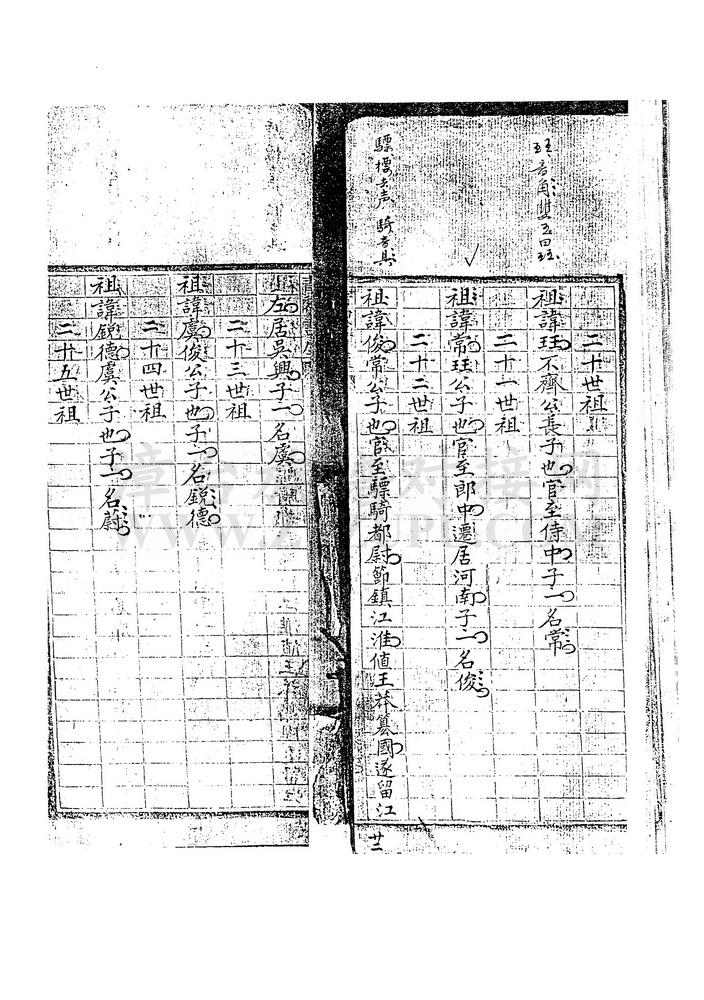 二十世祖
祖諱珏不齊公長子也官至侍中子一名常
二十一世祖
祖諱常珏公子也官至郎中遷居河南子一名俊
二十二世祖
祖諱俊常公子也官至驃騎都尉節鎮江淮值王莽篡國遂留江
廿二
左居吳興子一名虞
二十三世祖
祖諱虞俊公子也子一名銳德
二十四世祖
祖諱銳德虞公子也子一名蔚
二十五世祖